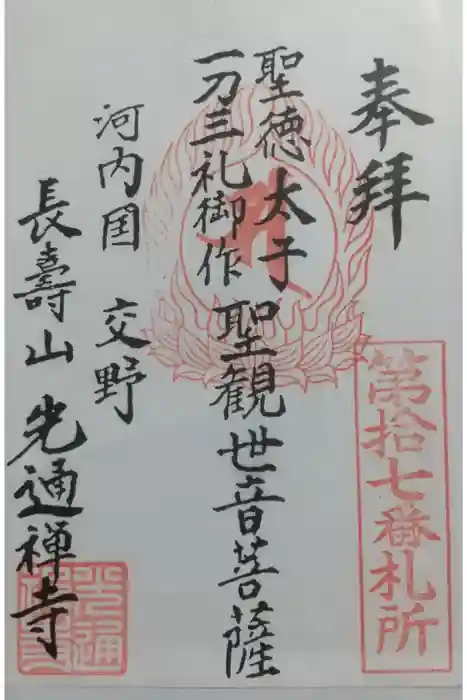 奉拝
第拾七番札所
聖徳太子
一刀三礼御作
聖観世音菩薩
河内国 交野
長壽山 光通禅寺
光通禅寺